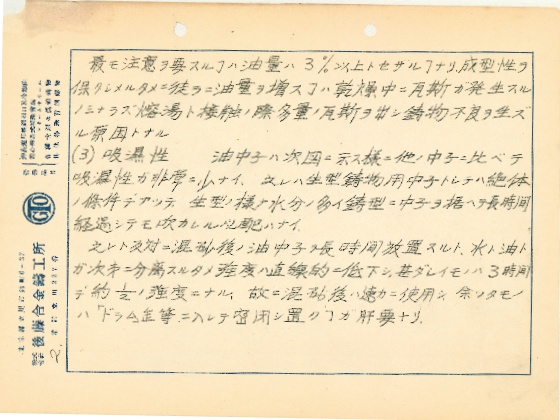 最モ注意ヲ要スルヿハ油量ハ3%以上トセザルヿナリ,成型性ヲ
保タシメルタメニ徒ラニ油量ヲ増スヿハ乾燥中ニ瓦斯ガ発生スル
ノミナラズ熔湯ト接触ノ際多量ノ瓦斯ヲ出シ鋳物不良ヲ生ズ
ル原因トナル
(3) 吸湿性 油中子ハ次図ニ示ス様ニ他ノ中子ニ比ベテ
吸湿性ガ非常ニ少ナイ、之レハ生型鋳物用中子トシテハ絶体
ノ条件デアツテ 生型ノ様ナ水分ノ多イ鋳型ニ中子ヲ据ヘテ長時間
経過シテモ吹カレル心配ハナイ.
之レト反対ニ混砂後ノ油中子ヲ長時間放置スルト、水ト油ト
ガ次第ニ分離スルタメ強度ハ直線的ニ低下シ、甚ダシイモノハ3時間
デ約½ノ強度ニナル、故ニ混砂後ハ速カニ使用シ、余ツタモノ
ハドラム缶等ニ入レテ密閉シ置クヿガ肝要ナリ.
株式会社 後藤合金鋳工所
2.